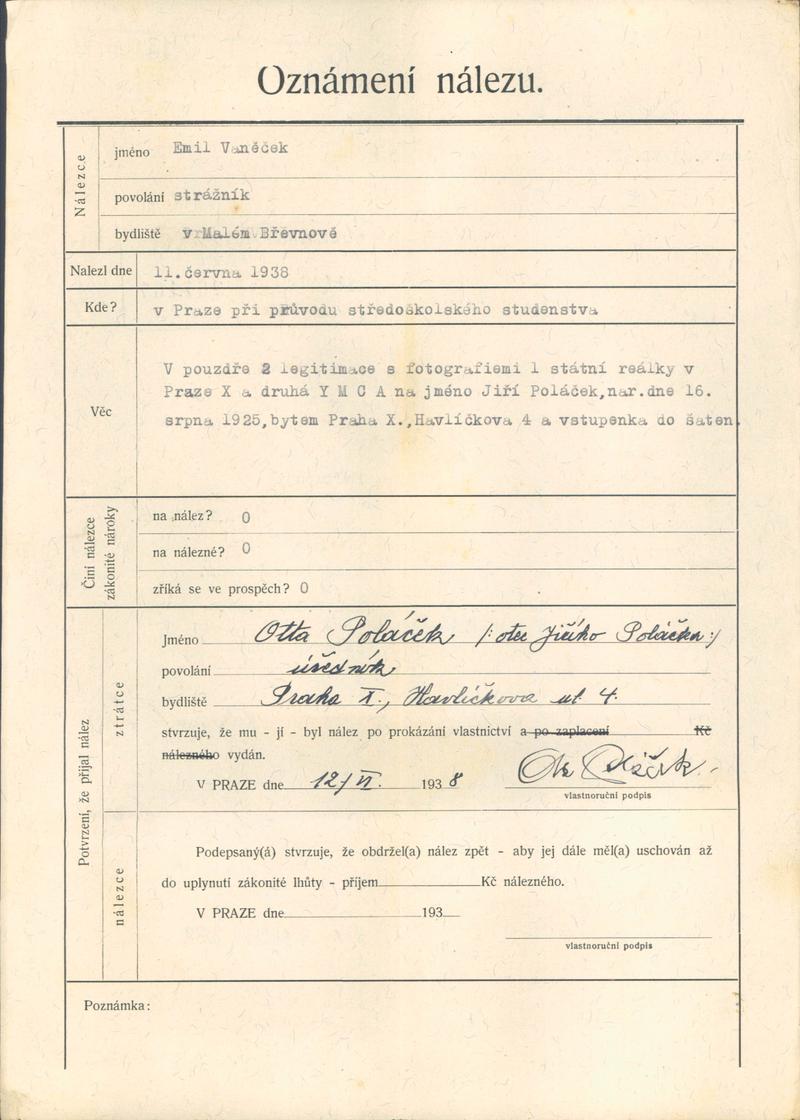 Oznámení nálezu.
Nálezce
jméno Emil Vaněček
povolání strážník
bydliště v Malém Břevnově
Nalezl dne 11.června 1938
Kde? v Praze při průvodu středoškolského studenstva
Věc
V pouzdře 2 legitimace s fotografiemi 1 státní reálky v
Praze X a druhá Y M C A na jméno Jiří Poláček,nar.dne 16.
srpna 1925,bytem Praha X.,Havlíčkova 4 a vstupenka do šaten
Činí nálezce zákonité nároky
na nález? 0
na nálezné? 0
zříká se ve prospěch? 0
Potvrzení, že přijal nález
ztrátce
Jméno Otta Poláček /: otec Jiřího Poláčka :/
povolání úředník
bydliště Praha X., Havlíčkova ul 4.
stvrzuje, že mu - jí - byl nález po prokázání vlastnictví a po zaplacení Kč
nálezného vydán.
V PRAZE dne 12/VI. 1938
vlastnoruční podpis
nálezce
Podepsaný(á) stvrzuje, že obdržel(a) nález zpět - aby jej dále měl(a) uschován až
do uplynutí zákonité lhůty - příjem Kč nálezného.
V PRAZE dne 193
vlastnoruční podpis
Poznámka: